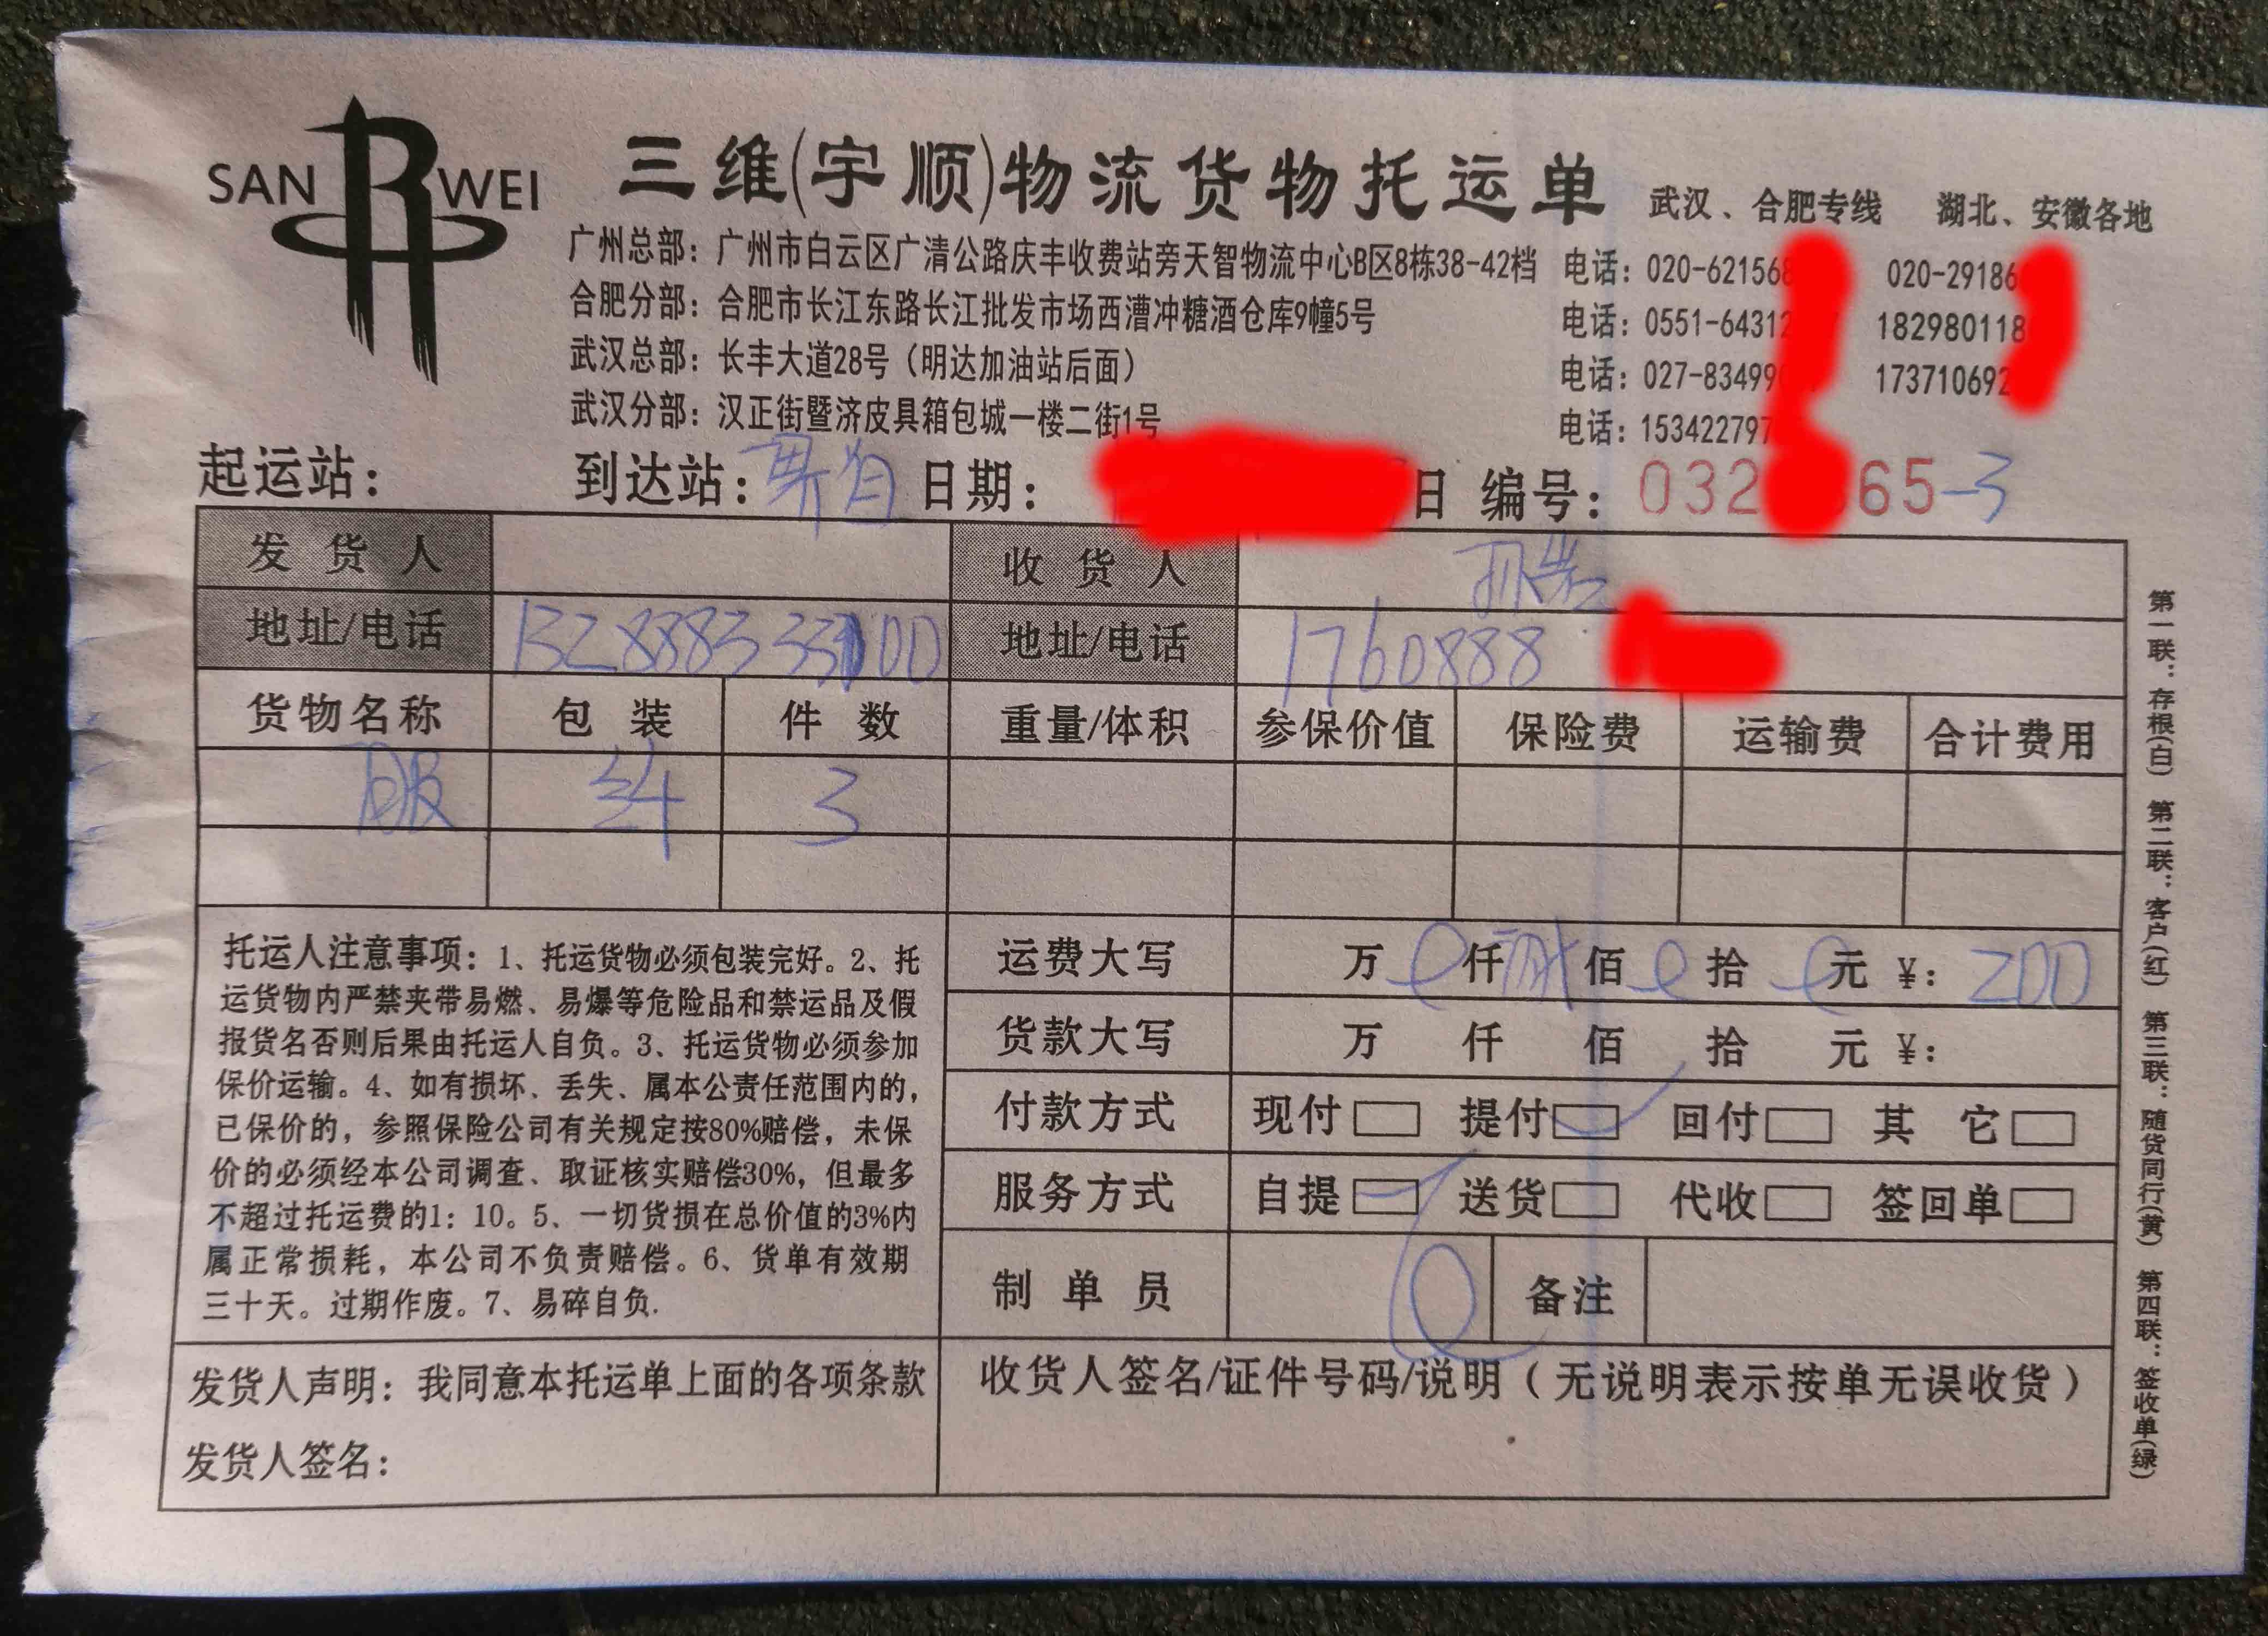 SAN WEI
三维(宇顺)物流货物托运单
武汉、合肥专线 湖北、安徽各地
广州总部：广州市白云区广清公路庆丰收费站旁天智物流中心B区8栋38-42档 电话：020-62156 020-29186
合肥分部：合肥市长江东路长江批发市场西漕冲糖酒仓库9幢5号 电话：0551-6431 182980118
武汉总部：长丰大道28号（明达加油站后面） 电话：027-83499 17371069
武汉分部：汉正街暨济皮具箱包城一楼二街1号 电话：15342279
起运站： 到达站： 日期： 日 编号：032 65-3
发货人 收货人
地址/电话 地址/电话 1760888
货物名称 包装 件数 重量/体积 参保价值 保险费 运输费 合计费用
服 3
托运人注意事项：1、托运货物必须包装完好。2、托
运货物内严禁夹带易燃、易爆等危险品和禁运品及假
报货名否则后果由托运人自负。3、托运货物必须参加
保价运输。4、如有损坏、丢失、属本公责任范围内的，
已保价的，参照保险公司有关规定按80%赔偿，未保
价的必须经本公司调查、取证核实赔偿30%，但最多
不超过托运费的1：10。5、一切货损在总价值的3%内
属正常损耗，本公司不负责赔偿。6、货单有效期
三十天。过期作废。7、易碎自负.
运费大写 万 仟 佰 拾 元 ¥：200
货款大写 万 仟 佰 拾 元 ¥：
付款方式 现付 提付 回付 其它
服务方式 自提 送货 代收 签回单
制单员 备注
发货人声明：我同意本托运单上面的各项条款
发货人签名：
收货人签名/证件号码/说明（无说明表示按单无误收货）
第一联：存根(白) 第二联：客户(红) 第三联：随货同行(黄) 第四联：签收单(绿)